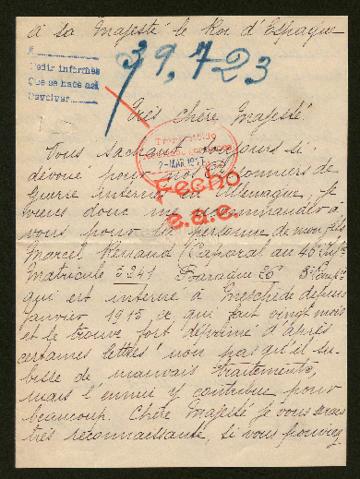 à sa Majesté le Roi d'Espagne
39,723
Pedir informes
Que se hace así
Devolver
Très Chère Majesté
2-MAR.1917
Vous sachant toujours si
dévoué pour nos prisonniers de
guerre internés en Allemagne, je
viens donc me recommander à
vous pour la personne de mon fils
Fecho
e.a.c.
Marcel Renaud (Caporal au 46e
Matricule 3241 Baraque 26
qui est interné à Meschede depuis
Janvier 1915, ce qui fait vingt mois
et le trouve fort déprimé d'après
certaines lettres non pas qu'il su-
bisse de mauvais traitements,
mais l'ennui y contribue pour
beaucoup. Chère Majesté je vous serais
très reconnaissante, si vous pouviez